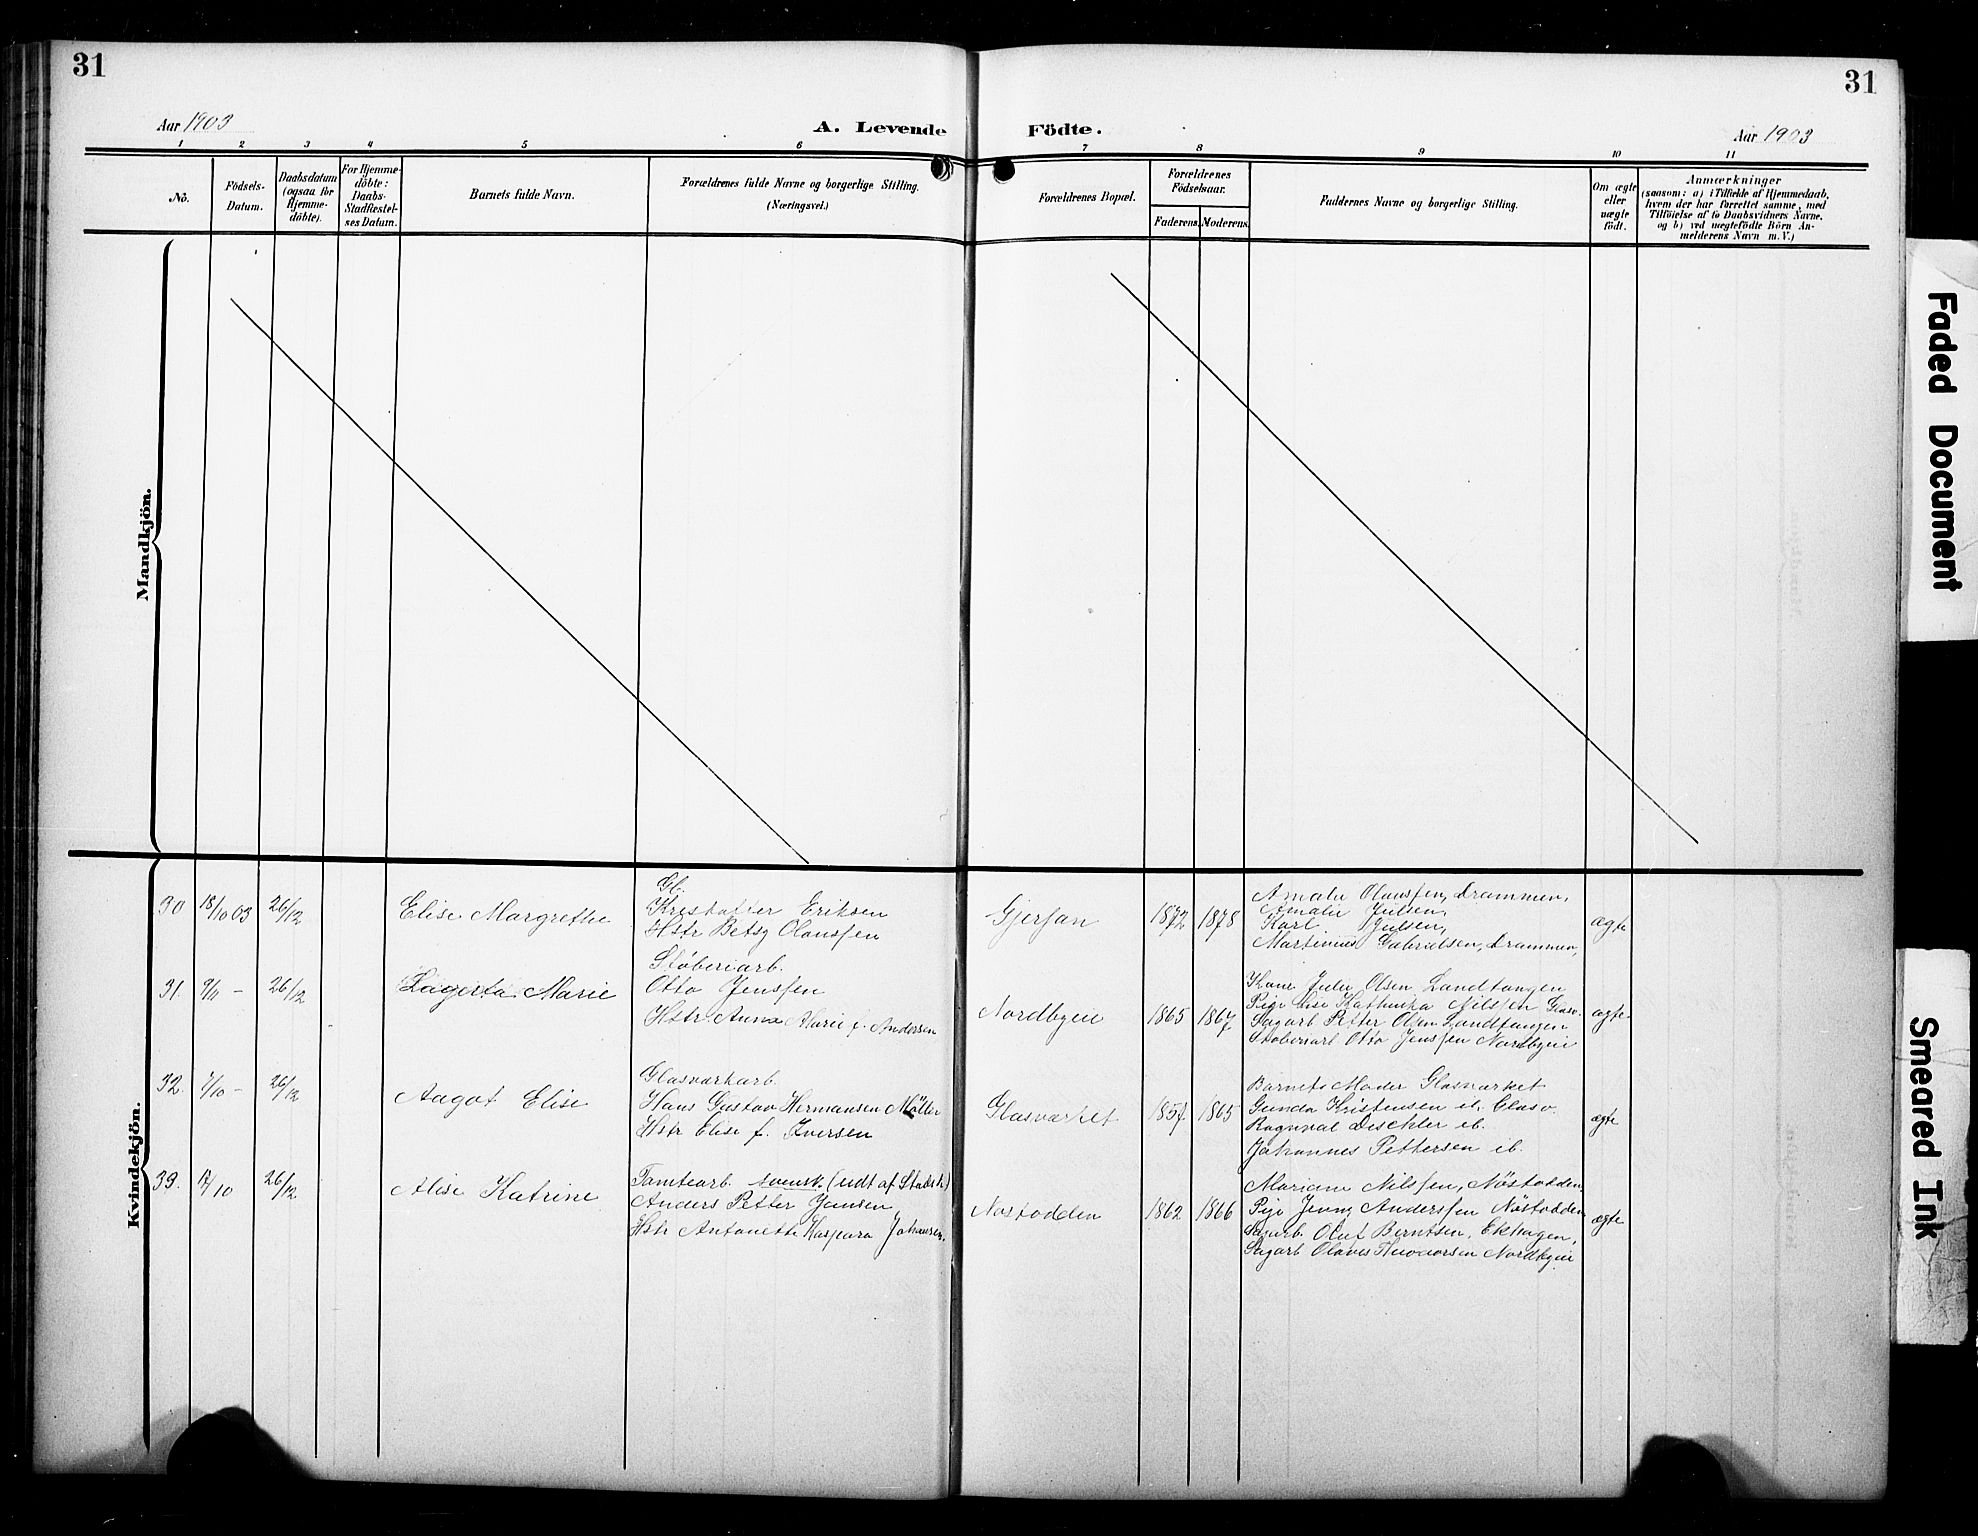 31
31
Aar 1903
A. Levende
Födte.
Aar 1903
1 2 3 4 5 6 7 8 9 10 11
No.
Födsels-
Datum.
Daabsdatum
(ogsaa for
Hjemme-
döbte).
For Hjemme-
döbte:
Daabs-
Stadfæstel-
ses Datum.
Barnets fulde Navn.
Forældrenes fulde Navne og borgerlige Stilling.
(Næringsvei.)
Forældrenes Bopæl.
Forældrenes
Födselsaar.
Faderens.
Moderens.
Faddernes Navne og borgerlige Stilling.
Om ægte
eller
uægte
födt.
Anmærkninger
(saasom: a) i Tilfælde af Hjemmedaab,
hvem der har forrettet samme, med
Tilföielse af to Daabsvidners Navne,
og b) ved uægtefödte Börn An-
melderens Navn m. V.)
Mandkjön.
Kvindekjön.
30
18/10 03
26/12
Elise Margrethe
Gb.
Kristoffer Eriksen
Hstr Betsy Olaussen
Gjersøn
1872
1878
Amalie Olaussen, Drammen,
Amalie Julsen,
Karl Julsen,
Martinius Gabrielsen, Drammen,
ægte
31.
9/11 -
26/12
Lagerta Marie
Støberiarb.
Otto Jenssen
Hstr. Anna Marie f. Andersen
Nordbyen
1865
1867
Kone Julie Olsen Landtangen
Pige Lise Kathinka Nilssen Glasv.
Sagarb Petter Olsen Landtangen
Støberiarb Otto Jenssen Nordbyen
ægte
32.
7/10 -
26/12
Aagot Elise
Glasværkarb.
Hans Gustav Hermansen Møller
Hstr Elise f. Iversen
Glasværket
1857
1865
Barnets Moder Glasværket
Gunda Kristensen ib. Glasv.
Ragnval Dischler ib.
Johannes Pettersen ib.
ægte
33.
17/10
26/12
Alise Katrine
Tomtearb. svensk. (udt af Statsk)
Anders Petter Jansen
Hstr Antonette Kaspara Johansen.
Nøstodden
1862
1866
Mariane Nilssen, Nøstodden,
Pige Jenny Anderssen Nøstodden
Sagarb. Oluf Berntsen, Ekhagen,
Sagarb Olaves Thevaorsen Nordbyen
ægte
Faded Document
Smeared Ink